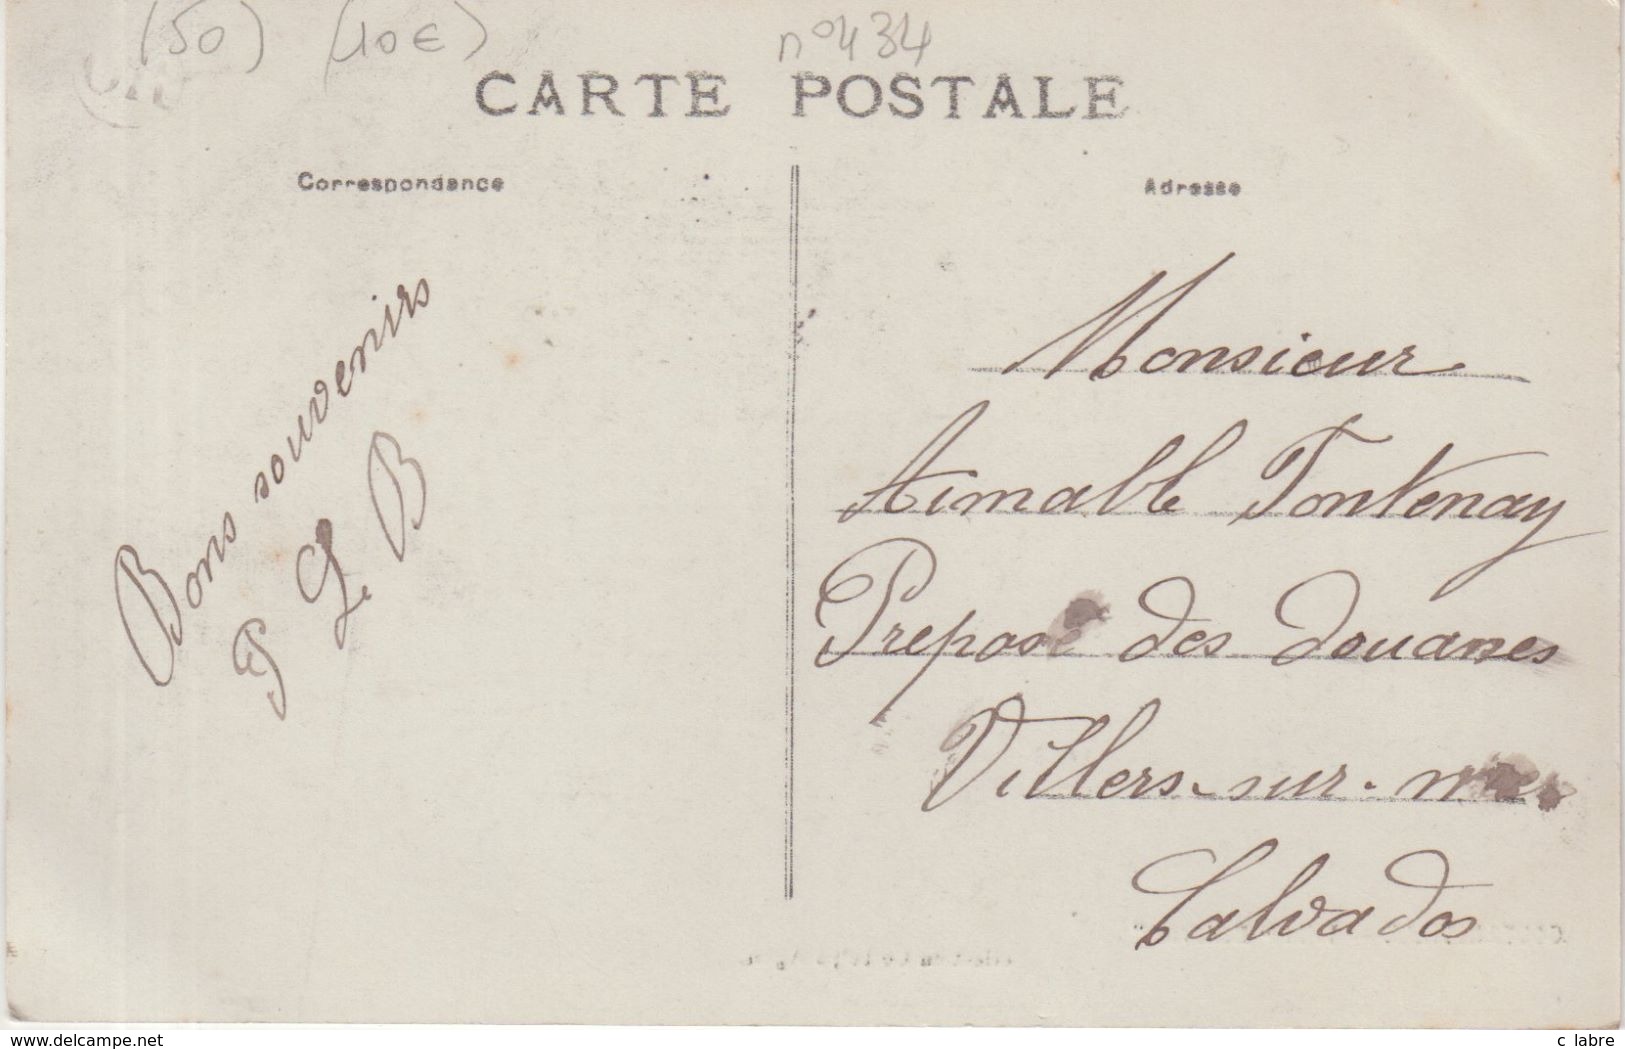 (50) (10€) n°434
CARTE POSTALE
Correspondance
Adresse
Bons souvenirs
P L B
Monsieur
Aimable Fontenay
Preposé des douanes
Villers-sur-mer
Calvados
www.delcampe.net
c labre